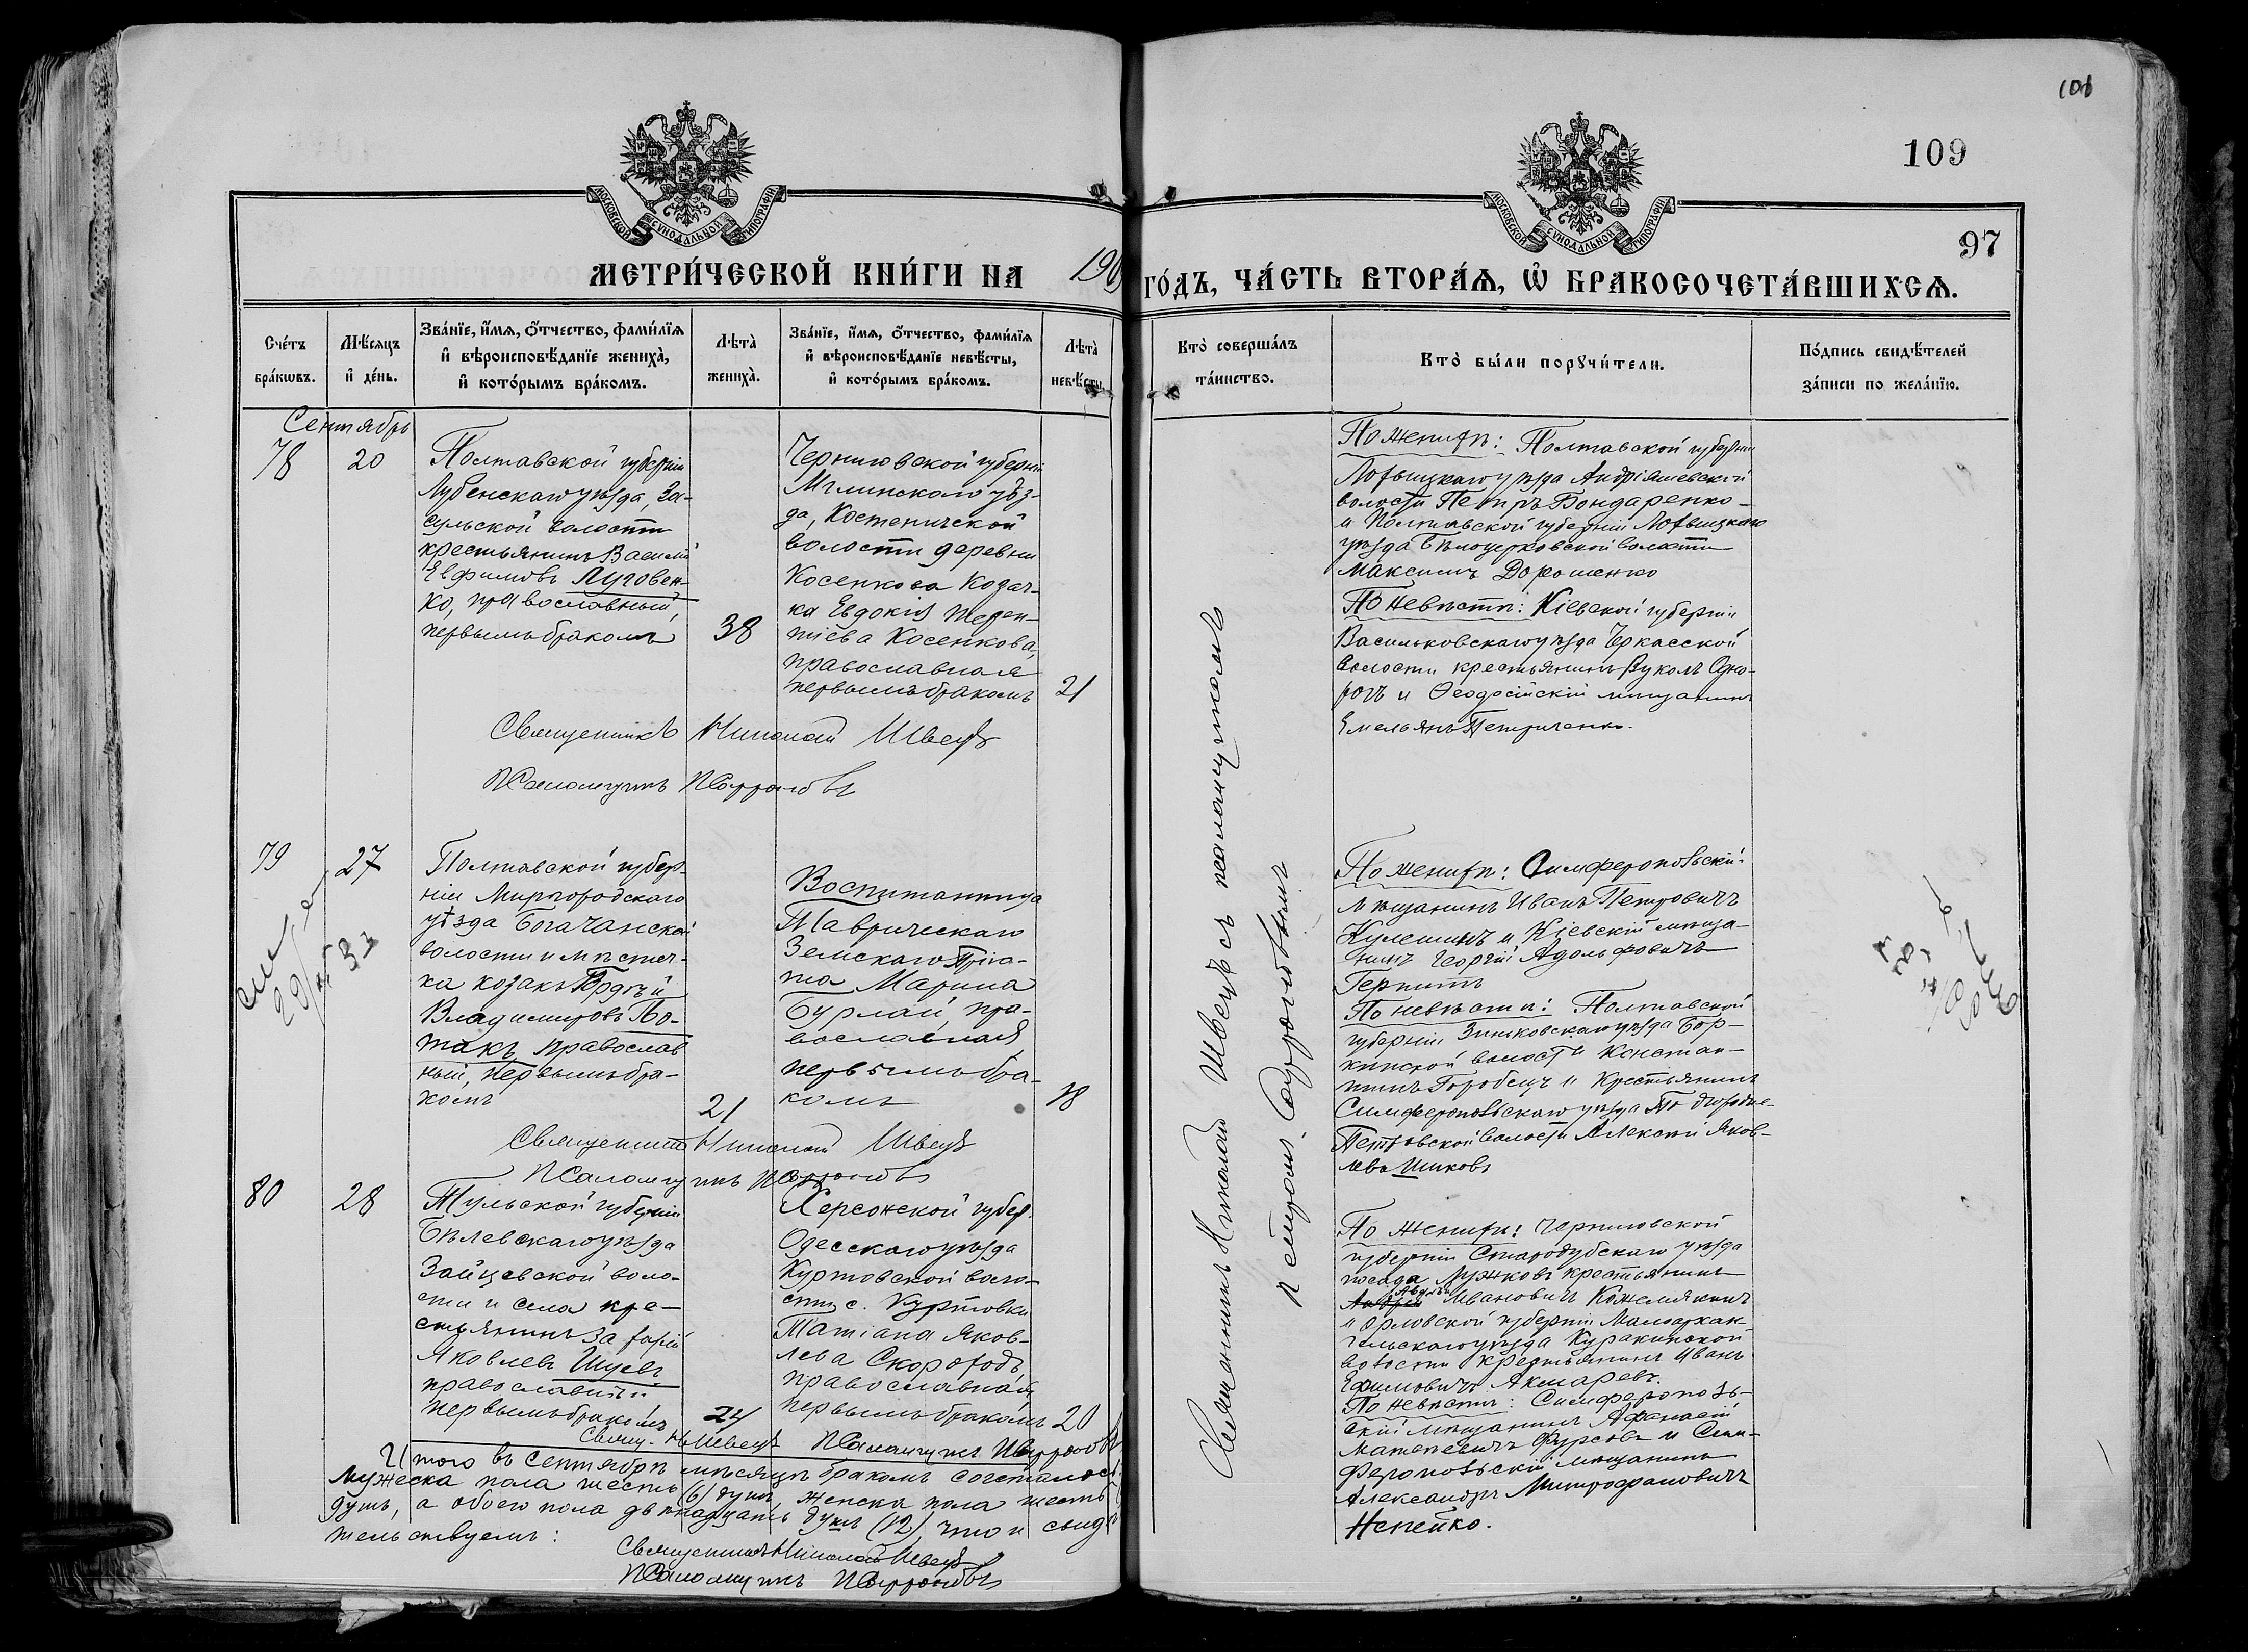 108
109
97
МОСКОВСКОЙ СѴНОДАЛЬНОЙ ТИПОГРАФІИ
МОСКОВСКОЙ СѴНОДАЛЬНОЙ ТИПОГРАФІИ
МЕТРИ́ЧЕСКОЙ КНИ́ГИ НА 190
ГО́ДЪ, ЧА́СТЬ ВТОРА́Я, Ѿ БРАКОСОЧЕТА́ВШИХСЯ.
Сче́тъ бра́кωвъ.
Мѣ́сяцъ и҆ де́нь.
Зва́нїе, и҆́мя, ѻ҆́тчество, фами́лїя и҆ вѣроисповѣ́данїе жениха̀, и҆ кото́рымъ бра́комъ.
Лѣта̀ жениха̀.
Зва́нїе, и҆́мя, ѻ҆́тчество, фами́лїя и҆ вѣроисповѣ́данїе невѣ́сты, и҆ кото́рымъ бра́комъ.
Лѣта̀ невѣ́сты.
Кто̀ соверша́лъ та́инство.
Кто̀ бы́ли порꙋчи́тели.
По́дпись свидѣ́телей за́писи по жела́нїю.
Сентябрь
78
20
Полтавской губерніи
Лубенскаго уѣзда, За-
сульской волости
крестьянинъ Василій
Евфимовъ Луговен-
ко, православный,
первымъ бракомъ
38
Черниговской губерніи
Мглинскаго уѣз-
да, Костеничской
волости деревни
Косенкова Козач-
ка Евдокія Терен-
тіева Косенкова,
православная
первымъ бракомъ
21
По женихѣ: Полтавской губерніи
Лохвицкаго уѣзда Андріяшевской
волости Петръ Бондаренко
и Полтавской губерніи Лохвицкаго
уѣзда Бѣлоцерковской волости
Максимъ Дорошенко
По невѣстѣ: Кіевской губерніи
Васильковскаго уѣзда Черкасской
волости крестьянинъ Вуколъ Одно-
рогъ и Ѳеодосійскій мѣщанинъ
Емельянъ Петриченко.
Священникъ Николай Швецъ
Псаломщикъ
79
27
Полтавской губер-
ніи Миргородскаго
уѣзда Богачанской
волости и мѣстеч-
ка козакъ
Владимировъ По-
такъ, православ
ный, первымъ бра-
комъ
21
Воспитанница
Таврическаго
Земскаго Прію-
та Марина
Бурлай, пра-
вославная
первымъ бра-
комъ
18
По женихѣ: Симферопольскій
мѣщанинъ Иванъ Петровичъ
и Кіевскій мѣща-
нинъ Георгій Адольфовичъ
По невѣстѣ: Полтавской
губерніи Зиньковскаго уѣзда Бор-
кинской волости Констан-
тинъ Горобецъ и Крестьянинъ
Симферопольскаго уѣзда Подгородне-
Петровской волости Алексѣй Яков-
левъ Шиковъ
Священникъ Николай Швецъ
Псаломщикъ
80
28
Тульской губерніи
Бѣлевскаго уѣзда
Зайцевской воло-
сти и села кре-
стьянинъ Захарій
Яковлевъ Шуевъ
православный
первымъ бракомъ
24
Херсонской губер.
Одесскаго уѣзда
Куртовской воло-
сти, с. Куртовки
Татіана Яков-
лева Скороходъ,
православная,
первымъ бракомъ
20
По женихѣ: Черниговской
губерніи Стародубскаго уѣзда
посада Лужковъ крестьянинъ
Ивановичъ Кожемякинъ
и Орловской губерніи Малоархан-
гельскаго уѣзда Куракинской
волости крестьянинъ Иванъ
Ефимовичъ
По невѣстѣ: Симферополь-
скій мѣщанинъ Афанасій
Матвѣевичъ Фурсовъ и Сим-
феропольскій мѣщанинъ
Александръ Митрофановичъ
Непейко.
Свящ. Н. Швецъ Псаломщикъ
Итого въ Сентябрѣ мѣсяцѣ бракомъ сочеталось:
Мужеска пола шесть (6) душъ, женска пола шесть
душъ, а обоего пола двѣнадцать душъ (12), что и свидѣ
тельствуемъ:
Священникъ Николай Швецъ
Псаломщикъ
Священникъ Николай Швецъ съ псаломщикомъ